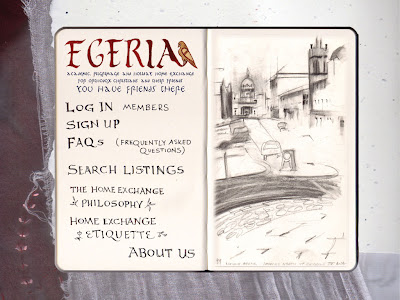 EGERIA
ACADEMIC, PILGRIMAGE AND HOLIDAY HOME EXCHANGE
FOR ORTHODOX CHRISTIANS AND THEIR FRIENDS
YOU HAVE FRIENDS THERE
LOG IN MEMBERS
SIGN UP
FAQs (FREQUENTLY ASKED
QUESTIONS)
SEARCH LISTINGS
THE HOME EXCHANGE
PHILOSOPHY
HOME EXCHANGE
ETIQUETTE
ABOUT US